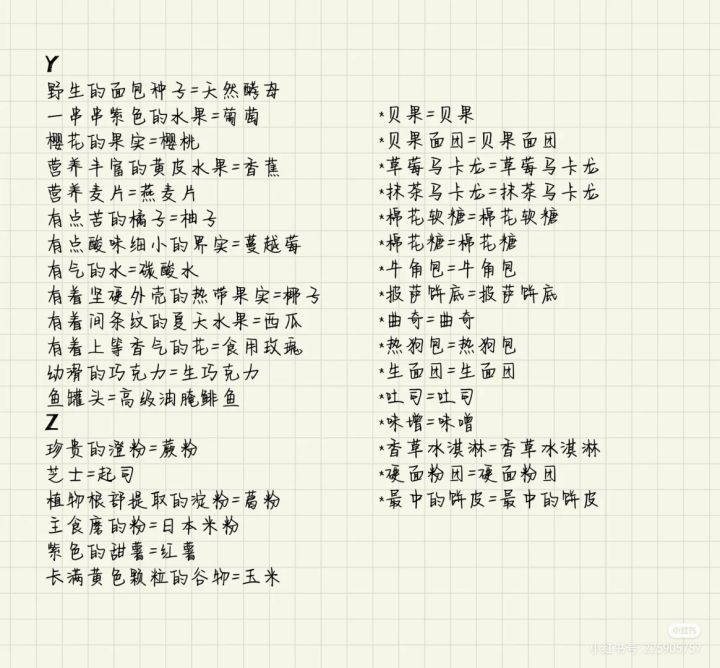 Y
野生的面包种子=天然酵母
一串串紫色的水果=葡萄
樱花的果实=樱桃
营养丰富的黄皮水果=香蕉
营养麦片=燕麦片
有点苦的橘子=柚子
有点酸味细小的果实=蔓越莓
有气的水=碳酸水
有着坚硬外壳的热带果实=椰子
有着间条纹的夏天水果=西瓜
有着上等香气的花=食用玫瑰
幼滑的巧克力=生巧克力
鱼罐头=高级油腌鲱鱼
Z
珍贵的澄粉=蕨粉
芝士=起司
植物根部提取的淀粉=葛粉
主食磨的粉=日本米粉
紫色的甜薯=红薯
长满黄色颗粒的谷物=玉米
*贝果=贝果
*贝果面团=贝果面团
*草莓马卡龙=草莓马卡龙
*抹茶马卡龙=抹茶马卡龙
*棉花软糖=棉花软糖
*棉花糖=棉花糖
*牛角包=牛角包
*披萨饼底=披萨饼底
*曲奇=曲奇
*热狗包=热狗包
*生面团=生面团
*吐司=吐司
*味增=味噌
*香草冰淇淋=香草冰淇淋
*硬面粉团=硬面粉团
*最中的饼皮=最中的饼皮
小红书
小红书号: 275905757